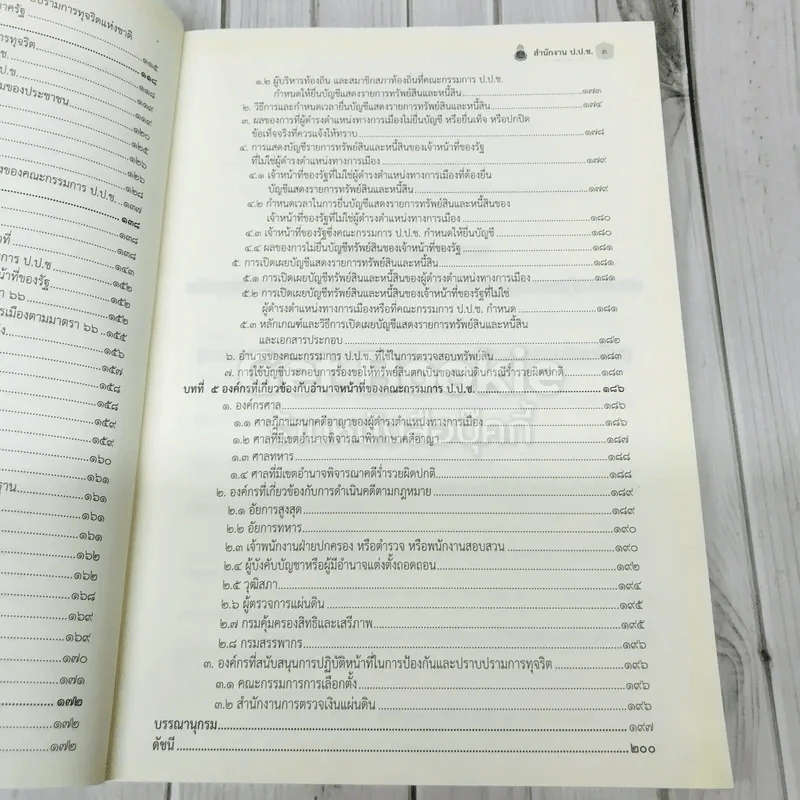 บปรามการทุจริตแห่งชาติ
าครัฐ
๑๑๕
การทุจริต
๑๑๘
ช.
๑๑๘
.ป.ช.
๑๑๙
มของประชาชน
๑๑๙
๑๒๐
๑๒๕
๑๒๖
๑๒๘
งของคณะกรรมการ ป.ป.ช.
๑๓๗
๑๓๘
๑๓๘
ที่
๑๓๘
าร ป.ป.ช.
๑๔๓
น้าที่ของรัฐ
๑๕๒
า ๖๖
๑๕๒
ารเมืองตามมาตรา ๖๖
๑๕๕
๑๕๖
๑๕๗
๑๕๘
๑๕๘
๑๕๙
๑๕๙
๑๖๐
๑๖๑
ฐาน
๑๖๑
๑๖๑
๑๖๑
๑๖๒
๑๖๒
๑๖๘
๑๖๙
๑๖๙
๑๗๐
๑๗๑
๑๗๒
๑๗๒
๑๗๒
สำนักงาน ป.ป.ช.
๑.๒ ผู้บริหารท้องถิ่น และสมาชิกสภาท้องถิ่นที่คณะกรรมการ ป.ป.ช.
กำหนดให้ยื่นบัญชีแสดงรายการทรัพย์สินและหนี้สิน ๑๗๓
๒. วิธีการและกำหนดเวลายื่นบัญชีแสดงรายการทรัพย์สินและหนี้สิน ๑๗๔
๓. ผลของการที่ผู้ดำรงตำแหน่งทางการเมืองไม่ยื่นบัญชี หรือยื่นเท็จ หรือปกปิด
ข้อเท็จจริงที่ควรแจ้งให้ทราบ ๑๗๘
๔. การแสดงบัญชีรายการทรัพย์สินและหนี้สินของเจ้าหน้าที่ของรัฐ
ที่ไม่ใช่ผู้ดำรงตำแหน่งทางการเมือง ๑๗๙
๔.๑ เจ้าหน้าที่ของรัฐที่ไม่ใช่ผู้ดำรงตำแหน่งทางการเมืองที่ต้องยื่น
บัญชีแสดงรายการทรัพย์สินและหนี้สิน ๑๗๙
๔.๒ กำหนดเวลาในการยื่นบัญชีแสดงรายการทรัพย์สินและหนี้สินของ
เจ้าหน้าที่ของรัฐที่ไม่ใช่ผู้ดำรงตำแหน่งทางการเมือง ๑๘๐
๔.๓ เจ้าหน้าที่ของรัฐซึ่งคณะกรรมการ ป.ป.ช. กำหนดให้ยื่นบัญชี ๑๘๐
๔.๔ ผลของการไม่ยื่นบัญชีทรัพย์สินของเจ้าหน้าที่ของรัฐ ๑๘๑
๕. การเปิดเผยบัญชีแสดงรายการทรัพย์สินและหนี้สิน ๑๘๑
๕.๑ การเปิดเผยบัญชีทรัพย์สินและหนี้สินของผู้ดำรงตำแหน่งทางการเมือง ๑๘๑
๕.๒ การเปิดเผยบัญชีทรัพย์สินและหนี้สินของเจ้าหน้าที่ของรัฐที่ไม่ใช่
ผู้ดำรงตำแหน่งทางการเมืองหรือที่คณะกรรมการ ป.ป.ช. กำหนด ๑๘๑
๕.๓ หลักเกณฑ์และวิธีการเปิดเผยบัญชีแสดงรายการทรัพย์สินและหนี้สิน
และเอกสารประกอบ ๑๘๒
๖. อำนาจของคณะกรรมการ ป.ป.ช. ที่ใช้ในการตรวจสอบทรัพย์สิน ๑๘๓
๗. การใช้บัญชีประกอบการร้องขอให้ทรัพย์สินตกเป็นของแผ่นดินกรณีร่ำรวยผิดปกติ ๑๘๓
บทที่ ๕ องค์กรที่เกี่ยวข้องกับอำนาจหน้าที่ของคณะกรรมการ ป.ป.ช. ๑๘๖
๑. องค์กรศาล ๑๘๖
๑.๑ ศาลฎีกาแผนกคดีอาญาของผู้ดำรงตำแหน่งทางการเมือง ๑๘๖
๑.๒ ศาลที่มีเขตอำนาจพิจารณาพิพากษาคดีอาญา ๑๘๗
๑.๓ ศาลทหาร ๑๘๘
๑.๔ ศาลที่มีเขตอำนาจพิจารณาคดีร่ำรวยผิดปกติ ๑๘๘
๒. องค์กรที่เกี่ยวข้องกับการดำเนินคดีตามกฎหมาย ๑๘๙
๒.๑ อัยการสูงสุด ๑๘๙
๒.๒ อัยการทหาร ๑๙๐
๒.๓ เจ้าพนักงานฝ่ายปกครอง หรือตำรวจ หรือพนักงานสอบสวน ๑๙๐
๒.๔ ผู้บังคับบัญชาหรือผู้มีอำนาจแต่งตั้งถอดถอน ๑๙๒
๒.๕ วุฒิสภา ๑๙๔
๒.๖ ผู้ตรวจการแผ่นดิน ๑๙๕
๒.๗ กรมคุ้มครองสิทธิและเสรีภาพ ๑๙๕
๒.๘ กรมสรรพากร ๑๙๖
๓. องค์กรที่สนับสนุนการปฏิบัติหน้าที่ในการป้องกันและปราบปรามการทุจริต ๑๙๖
๓.๑ คณะกรรมการการเลือกตั้ง ๑๙๖
๓.๒ สำนักงานการตรวจเงินแผ่นดิน ๑๙๖
บรรณานุกรม ๑๙๗
ดัชนี ๒๐๐